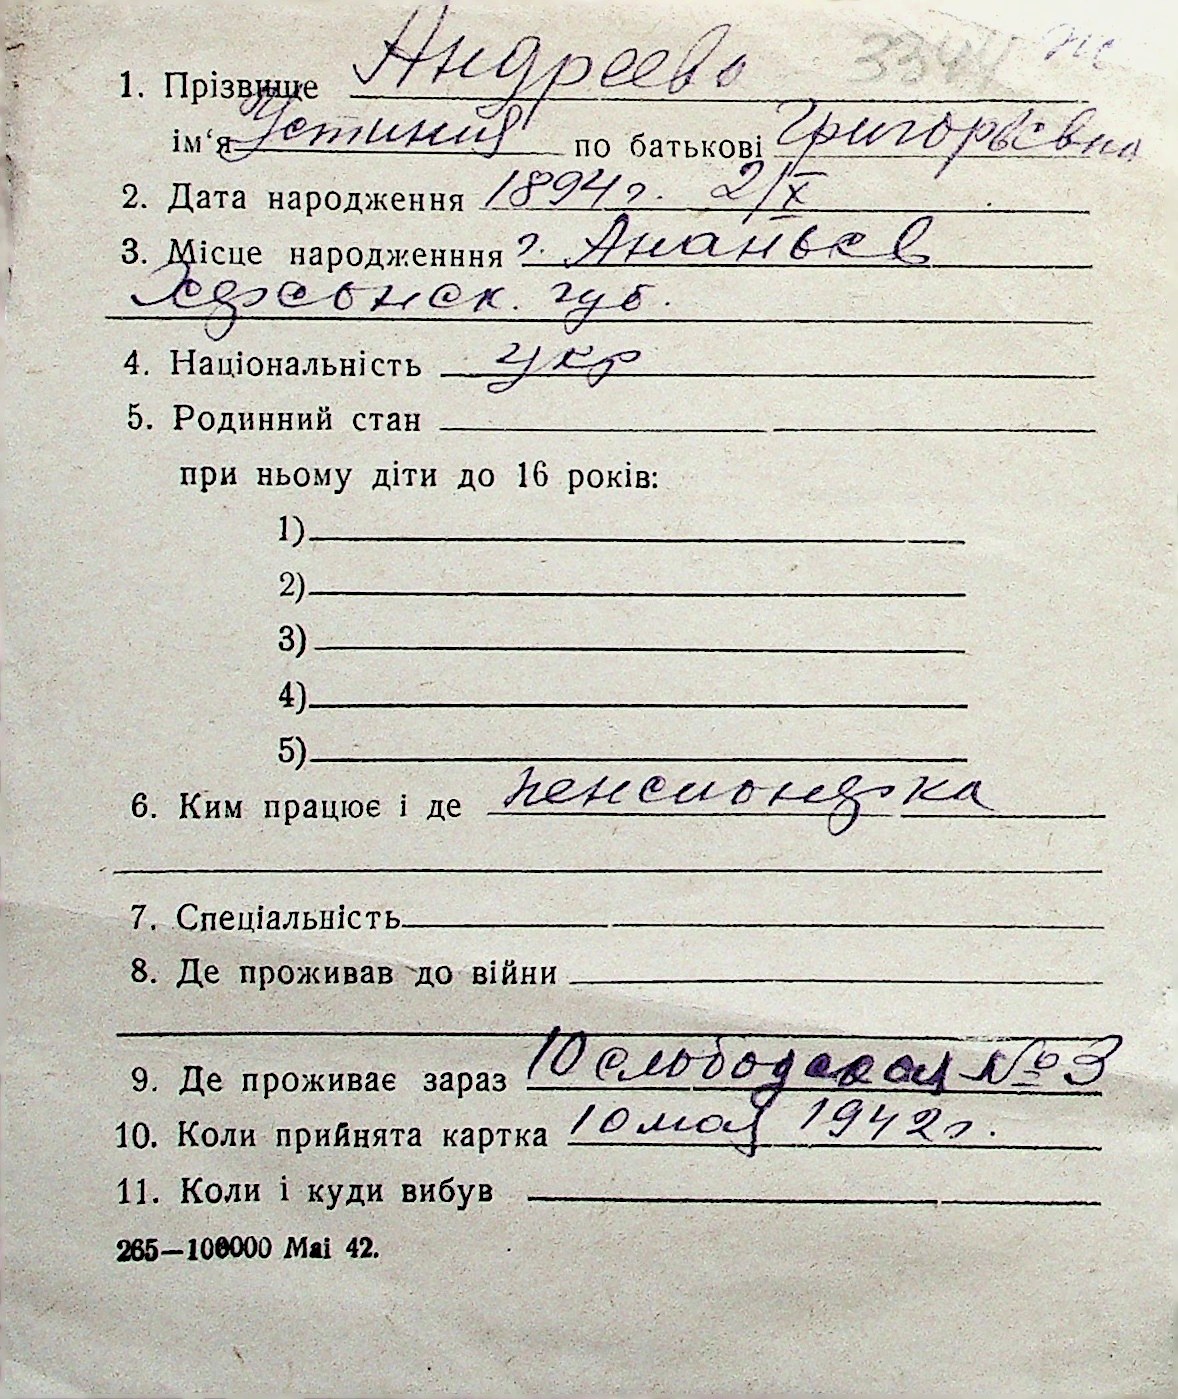 3344 ж
1. Прізвище Андреева
ім‘я Устиния по батькові Григорьевна
2. Дата народження 1894 г. 2/X
3. Місце народженння г. Ананьев
Херсонск. губ.
4. Національність укр
5. Родинний стан
при ньому діти до 16 років:
1)
2)
3)
4)
5)
6. Ким працює і де пенсионерка
7. Спеціальність
8. Де проживав до війни
9. Де проживає зараз 10 слободская № 3
10. Коли прийнята картка 10 мая 1942 г.
11. Коли і куди вибув
265—100000 Mai 42.